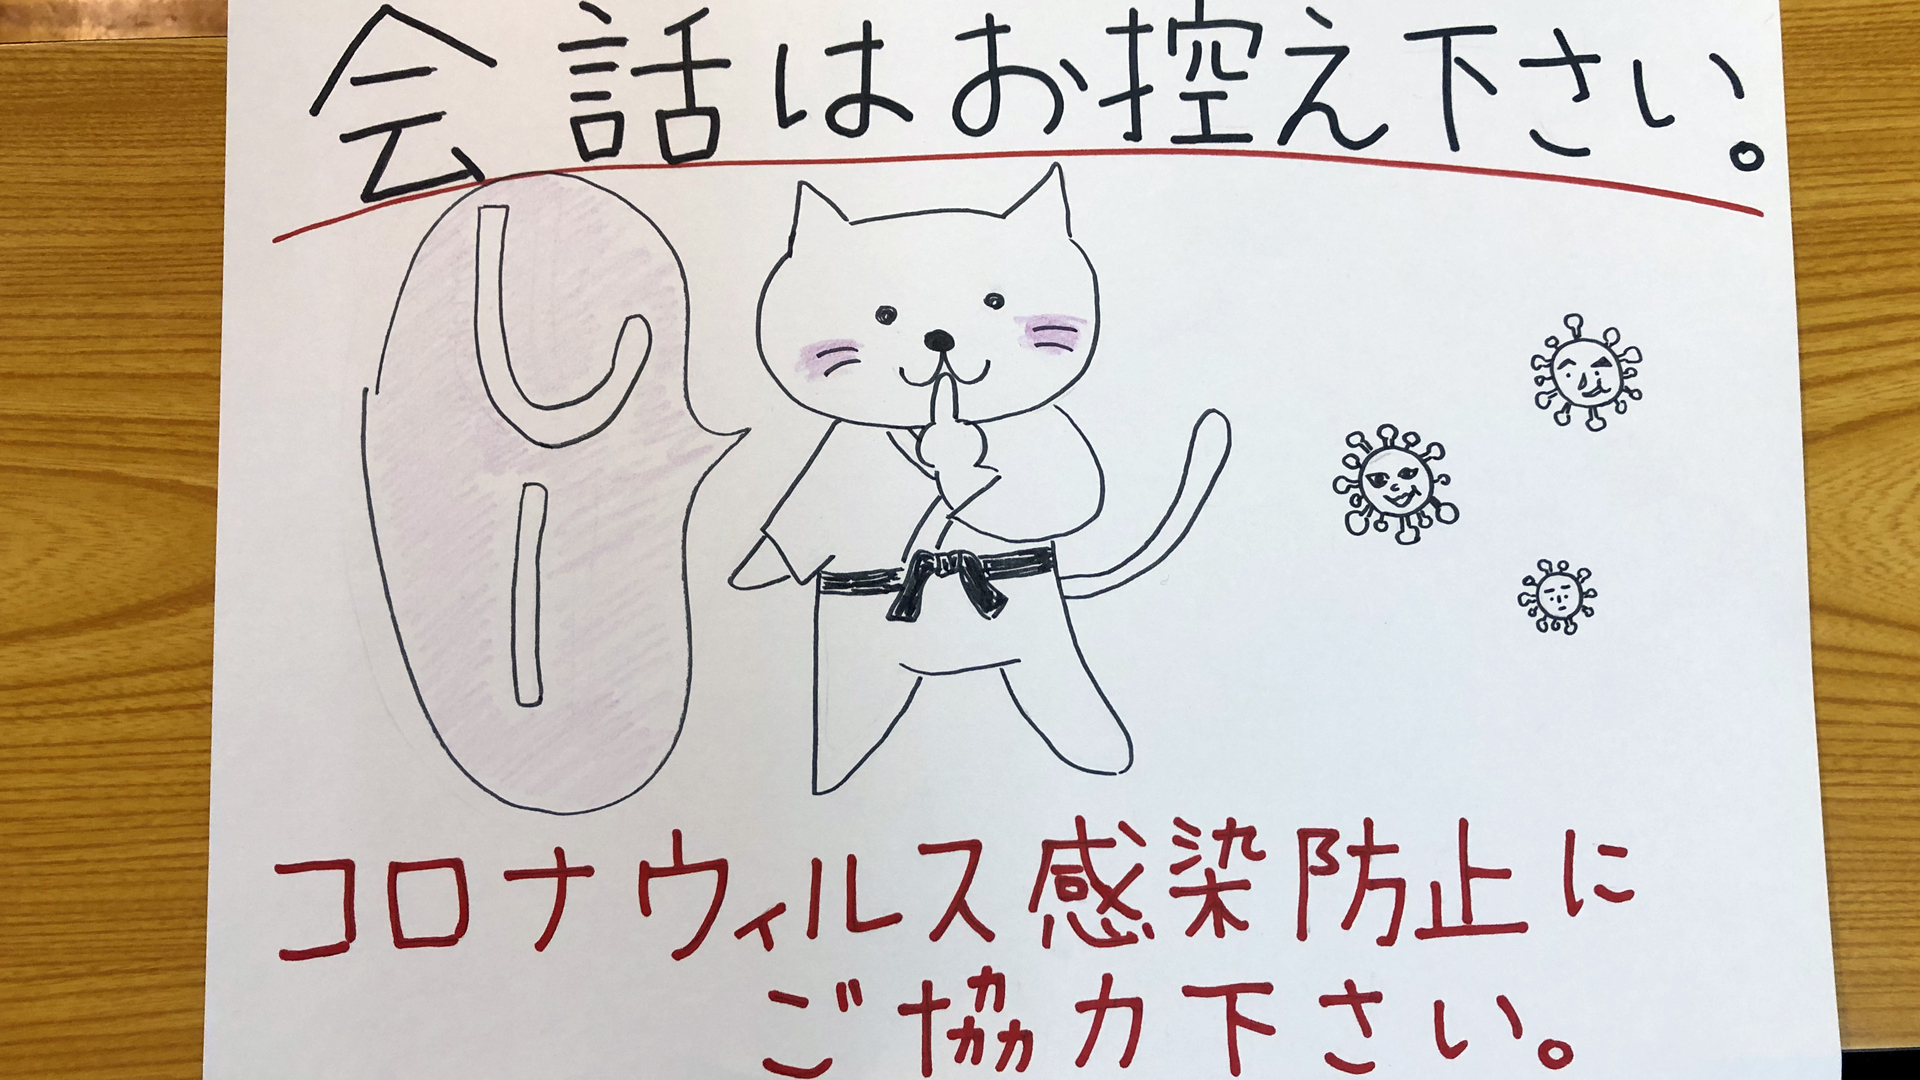 会話はお控え下さい。
しー
コロナウィルス感染防止に
ご協力下さい。